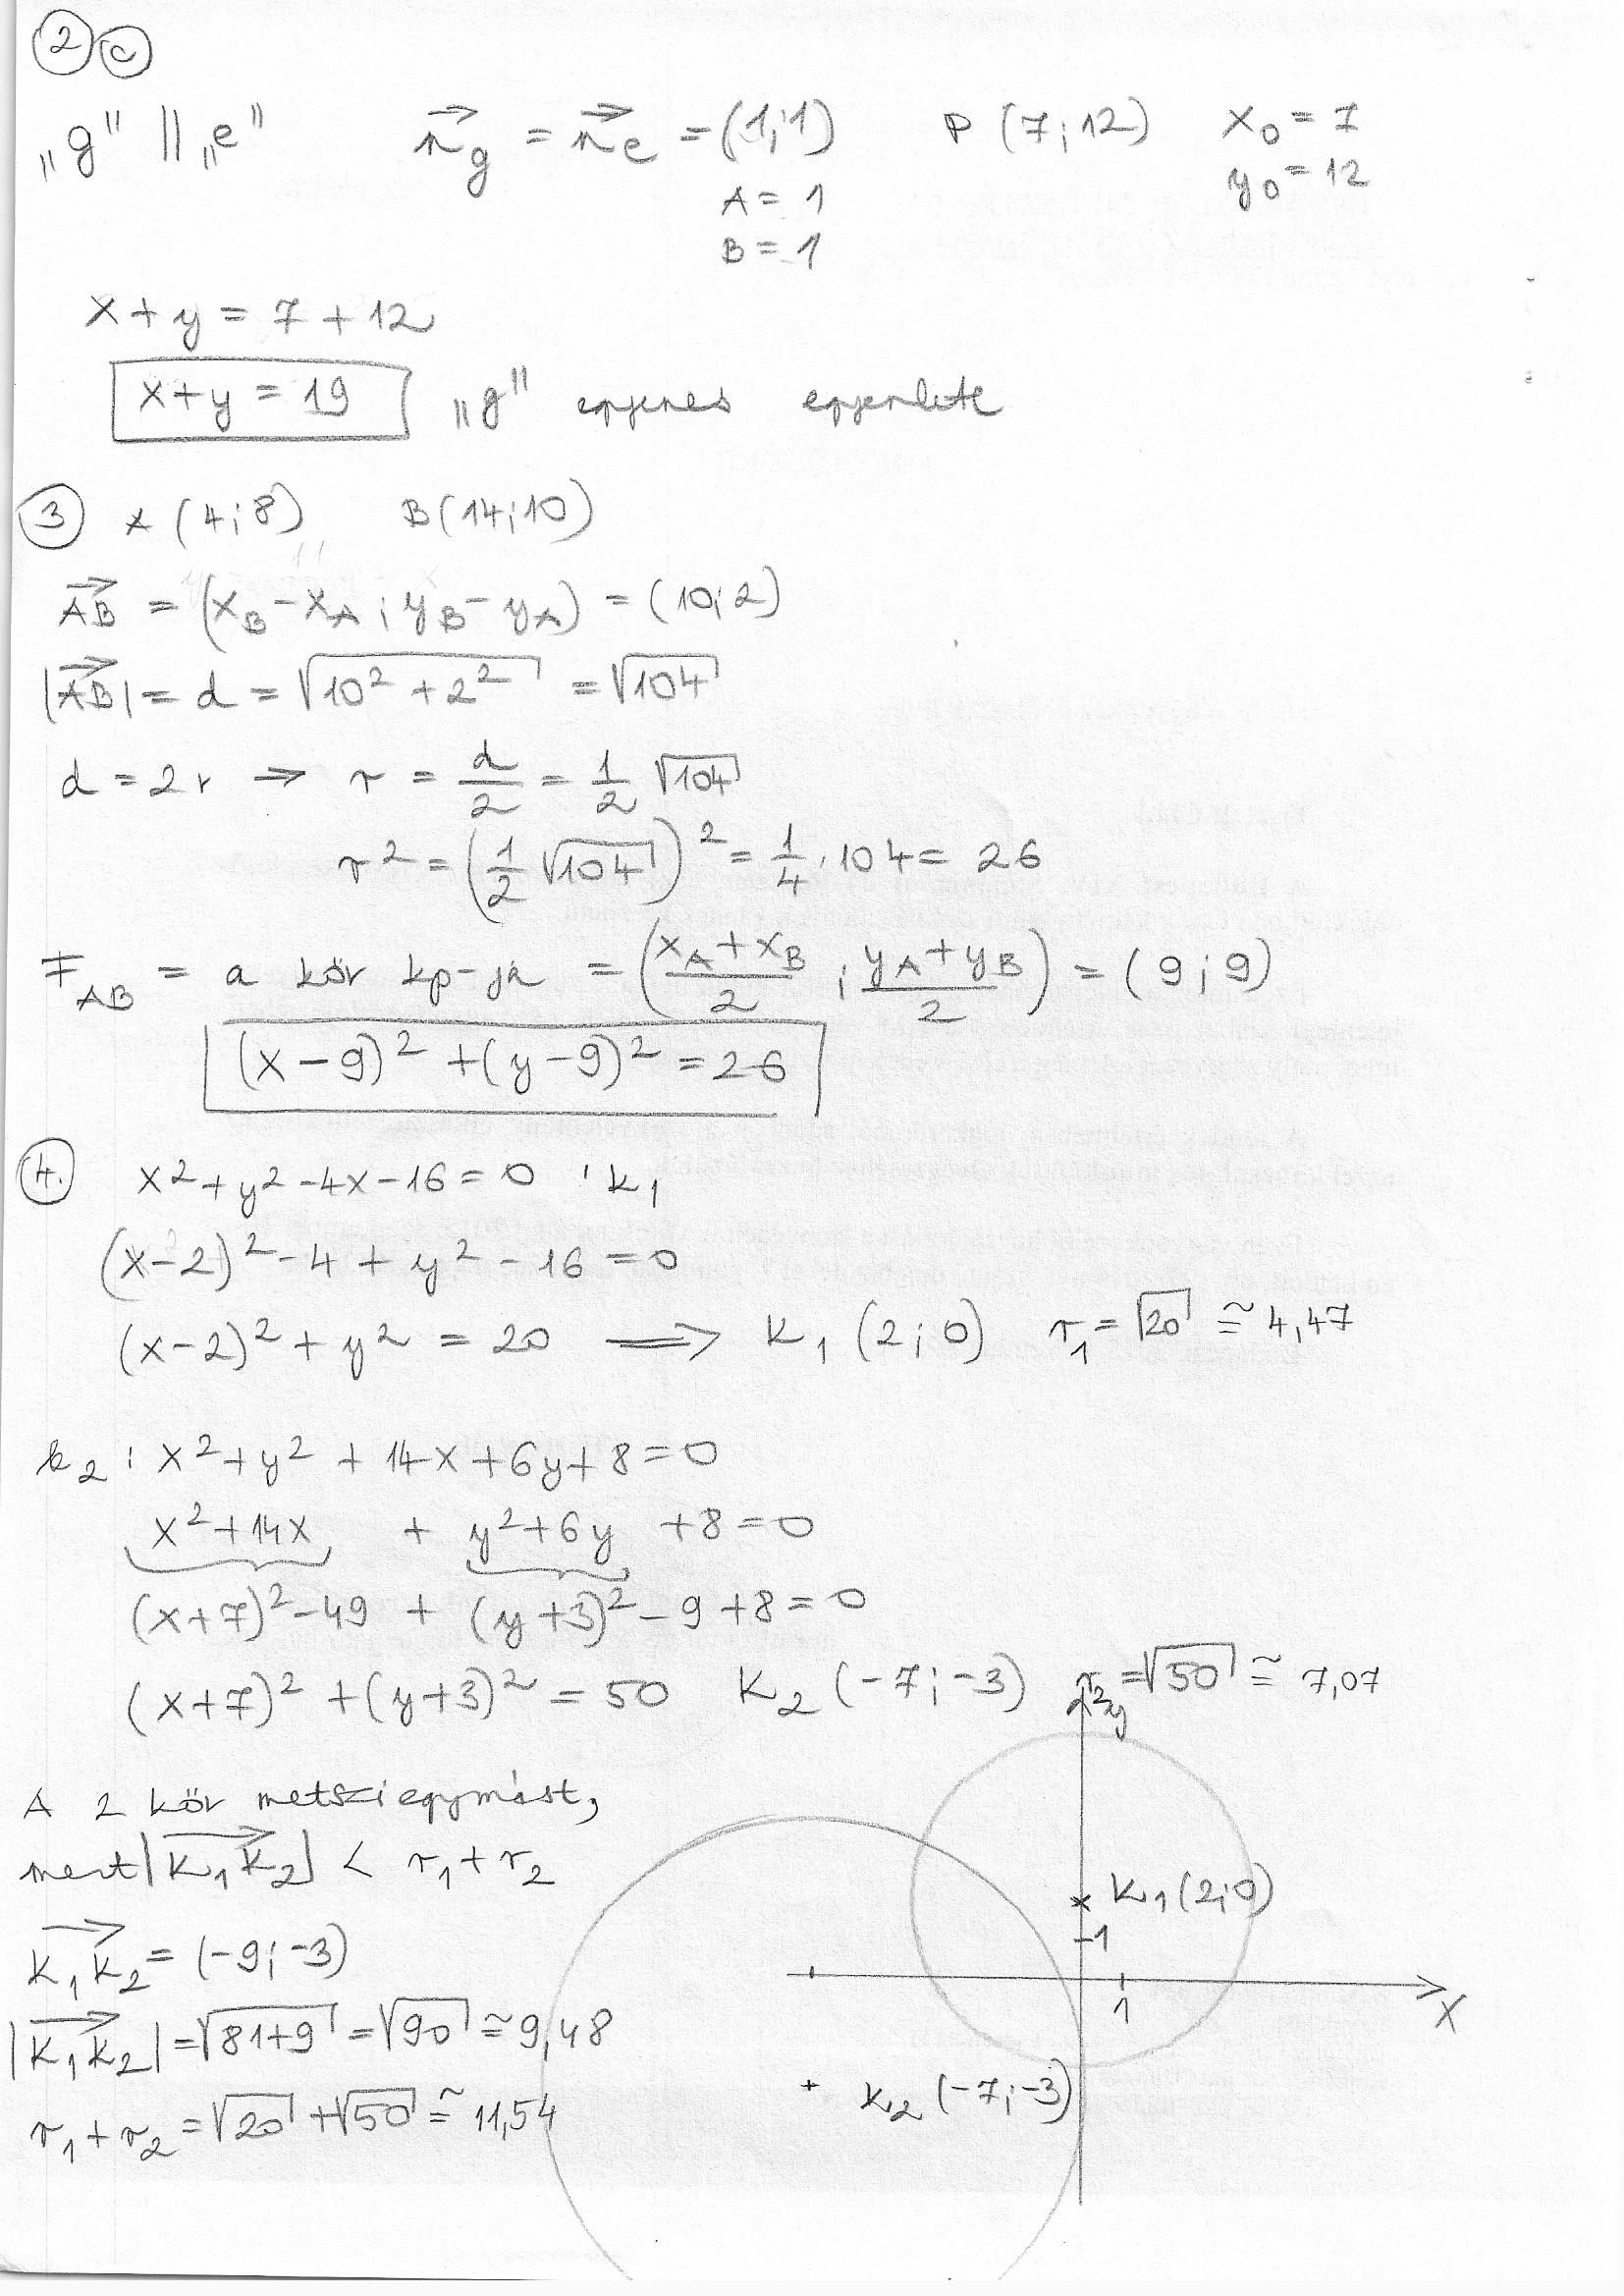 2 c
„g" || „e" n⃗g = n⃗e = (1;1) P (7;12) x₀ = 7
A = 1 y₀ = 12
B = 1
x + y = 7 + 12
x + y = 19 „g" egyenes egyenlete
3 A (4;8) B(14;10)
A⃗B⃗ = (x_B - x_A ; y_B - y_A) = (10;2)
|A⃗B⃗| = d = √(10² + 2²) = √104
d = 2r → r = d/2 = 1/2 √104
r² = (1/2 √104)² = 1/4 · 104 = 26
F_AB = a kör kp-ja = ((x_A + x_B)/2 ; (y_A + y_B)/2) = (9;9)
(x - 9)² + (y - 9)² = 26
4. x² + y² - 4x - 16 = 0 : k₁
(x - 2)² - 4 + y² - 16 = 0
(x - 2)² + y² = 20 ⟹ K₁ (2;0) r₁ = √20 ≅ 4,47
k₂ : x² + y² + 14x + 6y + 8 = 0
x² + 14x + y² + 6y + 8 = 0
(x + 7)² - 49 + (y + 3)² - 9 + 8 = 0
(x + 7)² + (y + 3)² = 50 K₂ (-7;-3) r₂ = √50 ≅ 7,07
y
A 2 kör metszi egymást,
mert |K₁K₂| < r₁ + r₂
K₁K₂ = (-9;-3)
|K₁K₂| = √(81+9) = √90 ≅ 9,48
r₁ + r₂ = √20 + √50 ≅ 11,54
K₁ (2;0)
1
1
X
K₂ (-7;-3)